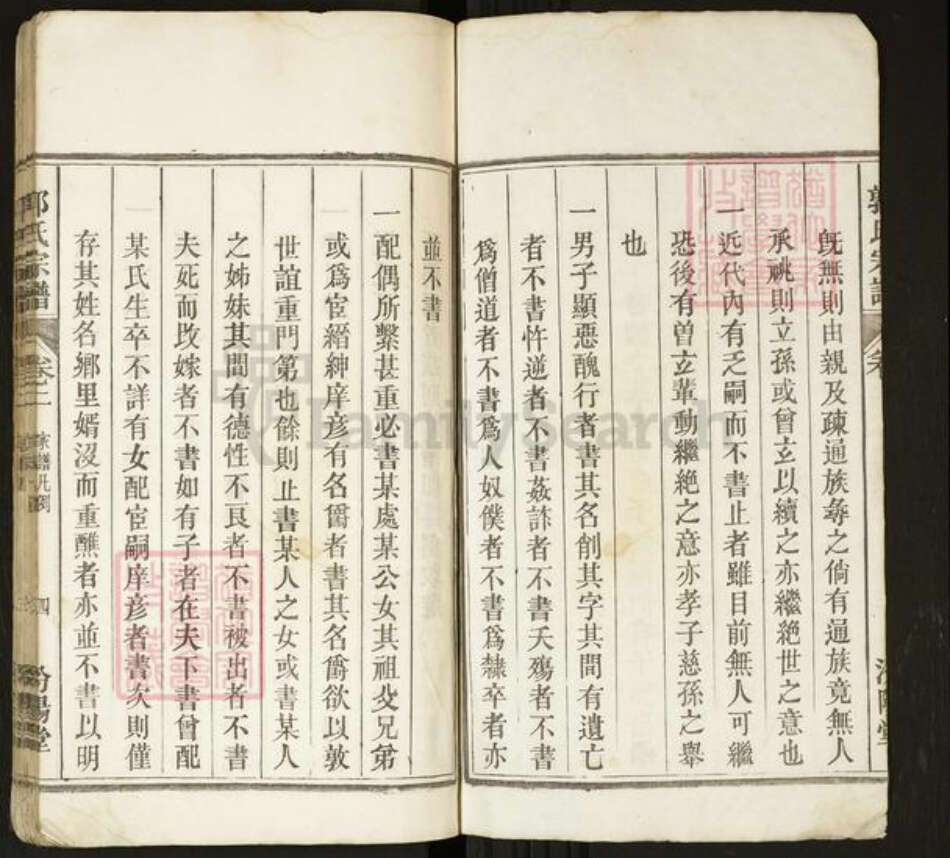 既無則由親及疎通族夀之倘有通族竟無人
承祧則立孫或曾玄以續之亦繼絶世之意也
一近代內有乏嗣而不書止者雖目前無人可繼
恐後有曾玄輩動繼絶之意亦孝子慈孫之舉
也
一男子顯惡醜行者書其名創其字其間有遺亡
者不書忤逆者不書姦詐者不書夭殤者不書
爲僧道者不書爲人奴僕者不書爲隸卒者亦
並不書
一配偶所繫甚重必書某處某公女其祖父兄弟
或爲宦縉紳庠彦有名爵者書其名爵欲以敦
世誼重門第也餘則止書某人之女或書某人
之姊妹其間有德性不良者不書被出者不書
夫死而改嫁者不書如有子者在夫下書曾配
某氏生卒不詳有女配宦嗣庠彦者書次則僅
存其姓名鄉里婿沒而重醮者亦並不書以明
郭氏宗譜
卷二
家譜凡例
四
汾陽堂
FamilySearch